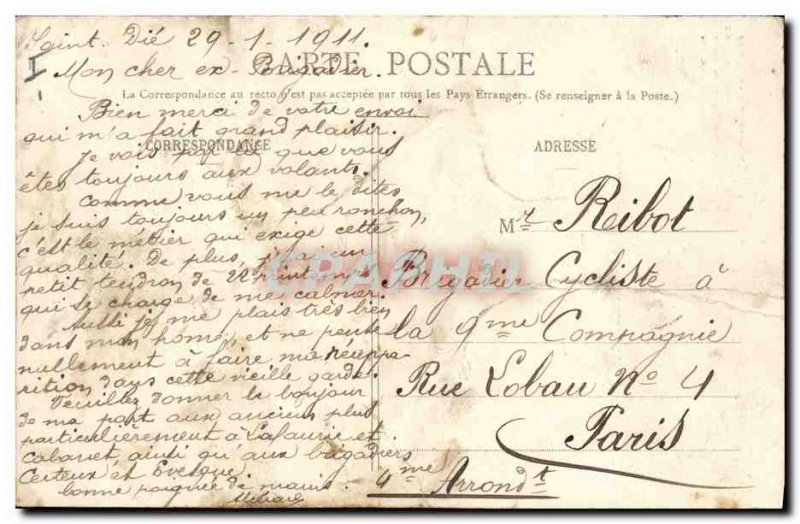 Saint Dié 29-1-1911.
CARTE POSTALE
Mon cher ex-Brigadier.
La Correspondance au recto n'est pas acceptée par tous les Pays Étrangers. (Se renseigner à la Poste.)
Bien merci de votre envoi
qui m'a fait grand plaisir.
CORRESPONDANCE
Je vois par là que vous
êtes toujours aux volants.
Comme vous me le dites
je suis toujours un peu ronchon,
c'est le métier qui exige cette
qualité. De plus, j'ai un
petit tendron de 22 printemps
qui se charge de me calmer.
Aussi je me plais très bien
dans mon home, et ne pense
nullement à faire ma réappa
rition dans cette vieille garde.
Veuillez donner le bonjour
de ma part aux anciens plus
particulièrement à Lafaurie et
Cabaret ainsi qu'aux brigadiers
Certeux et Evesque.
bonne poignée de mains.
ADRESSE
Mr Ribot
Brigadier Cycliste à
la 9me Compagnie
Rue Lobau No 4
Paris
4me Arrondt
CPARAMA